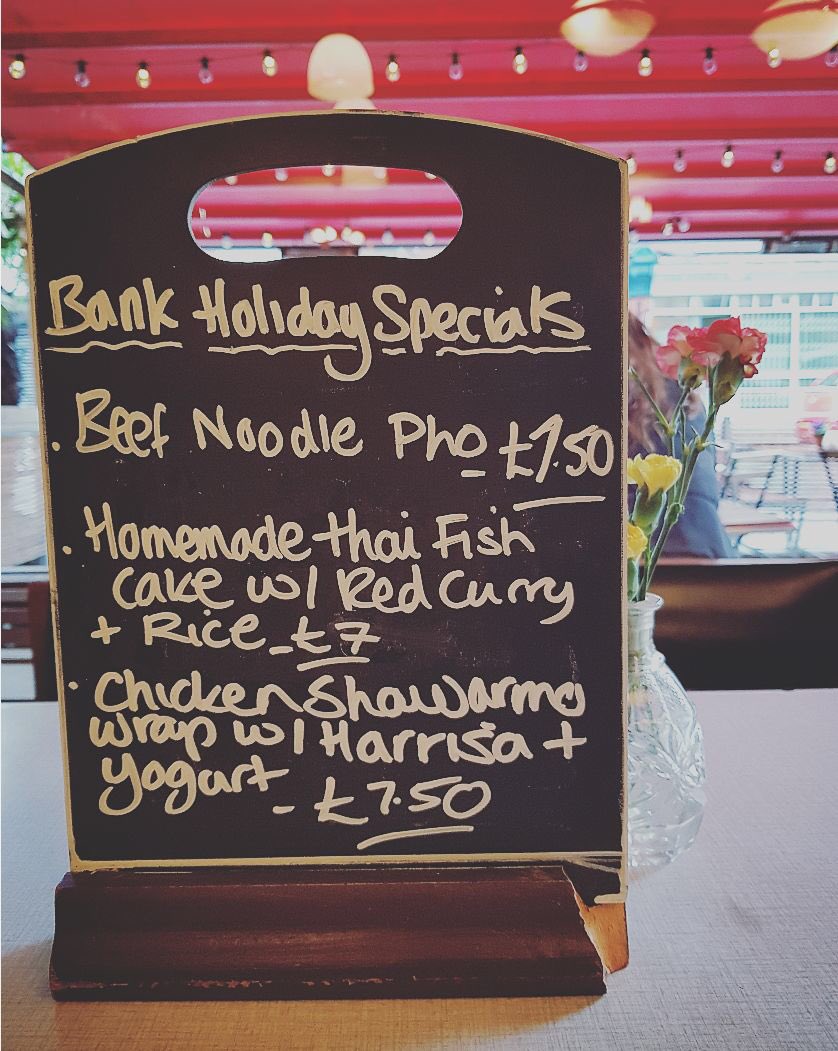 Bank Holiday Specials
· Beef Noodle Pho - £7.50
· Homemade thai Fish
Cake w/ Red Curry
+ Rice - £7
· Chicken Shawarma
wrap w/ Harrisa +
Yogurt - £7.50